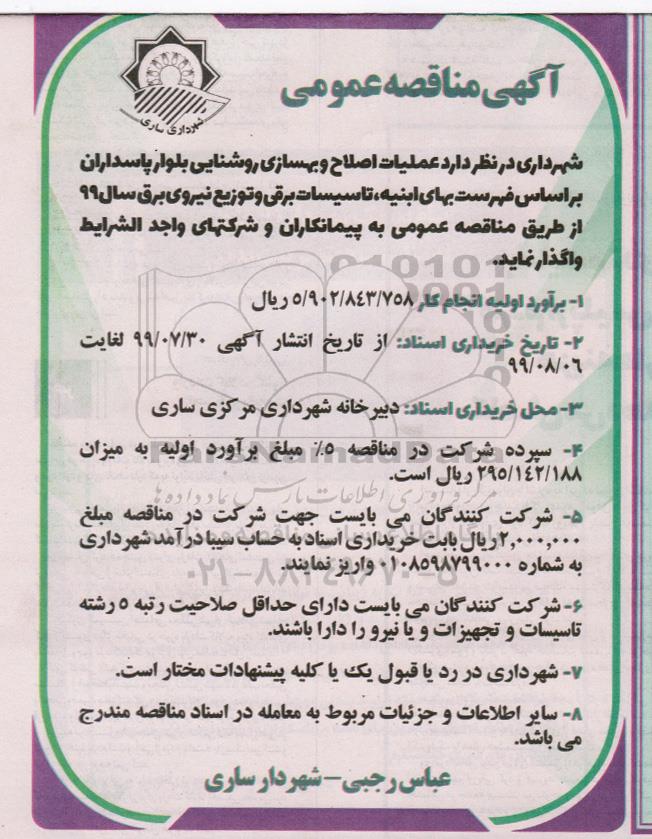 آگهی مناقصه عمومی
شهرداری ساری
شهرداری در نظر دارد عملیات اصلاح و بهسازی روشنایی بلوار پاسداران
بر اساس فهرست بهای ابنیه، تاسیسات برقی و توزیع نیروی برق سال ۹۹
از طریق مناقصه عمومی به پیمانکاران و شرکتهای واجد الشرایط
واگذار نماید.
۱- برآورد اولیه انجام کار ۵/۹۰۲/۸۴۳/۷۵۸ ریال
۲- تاریخ خریداری اسناد: از تاریخ انتشار آگهی ۹۹/۰۷/۳۰ لغایت
۹۹/۰۸/۰۶
۳- محل خریداری اسناد: دبیرخانه شهرداری مرکزی ساری
۴- سپرده شرکت در مناقصه ۵٪ مبلغ برآورد اولیه به میزان
۲۹۵/۱۴۲/۱۸۸ ریال است.
۵- شرکت کنندگان می بایست جهت شرکت در مناقصه مبلغ
۲,۰۰۰,۰۰۰ ریال بابت خریداری اسناد به حساب سیبا درآمد شهرداری
به شماره ۰۱۰۸۵۹۸۷۹۹۰۰۰ واریز نمایند.
۶- شرکت کنندگان می بایست دارای حداقل صلاحیت رتبه ۵ رشته
تاسیسات و تجهیزات و یا نیرو را دارا باشند.
۷- شهرداری در رد یا قبول یک یا کلیه پیشنهادات مختار است.
۸- سایر اطلاعات و جزئیات مربوط به معامله در اسناد مناقصه مندرج
می باشد.
عباس رجبی - شهردار ساری
ParsNamadData
مرکز فرآوری اطلاعات پارس نماد داده ها
۰۲۱-۸۸۳۴۹۶۷۰-۵